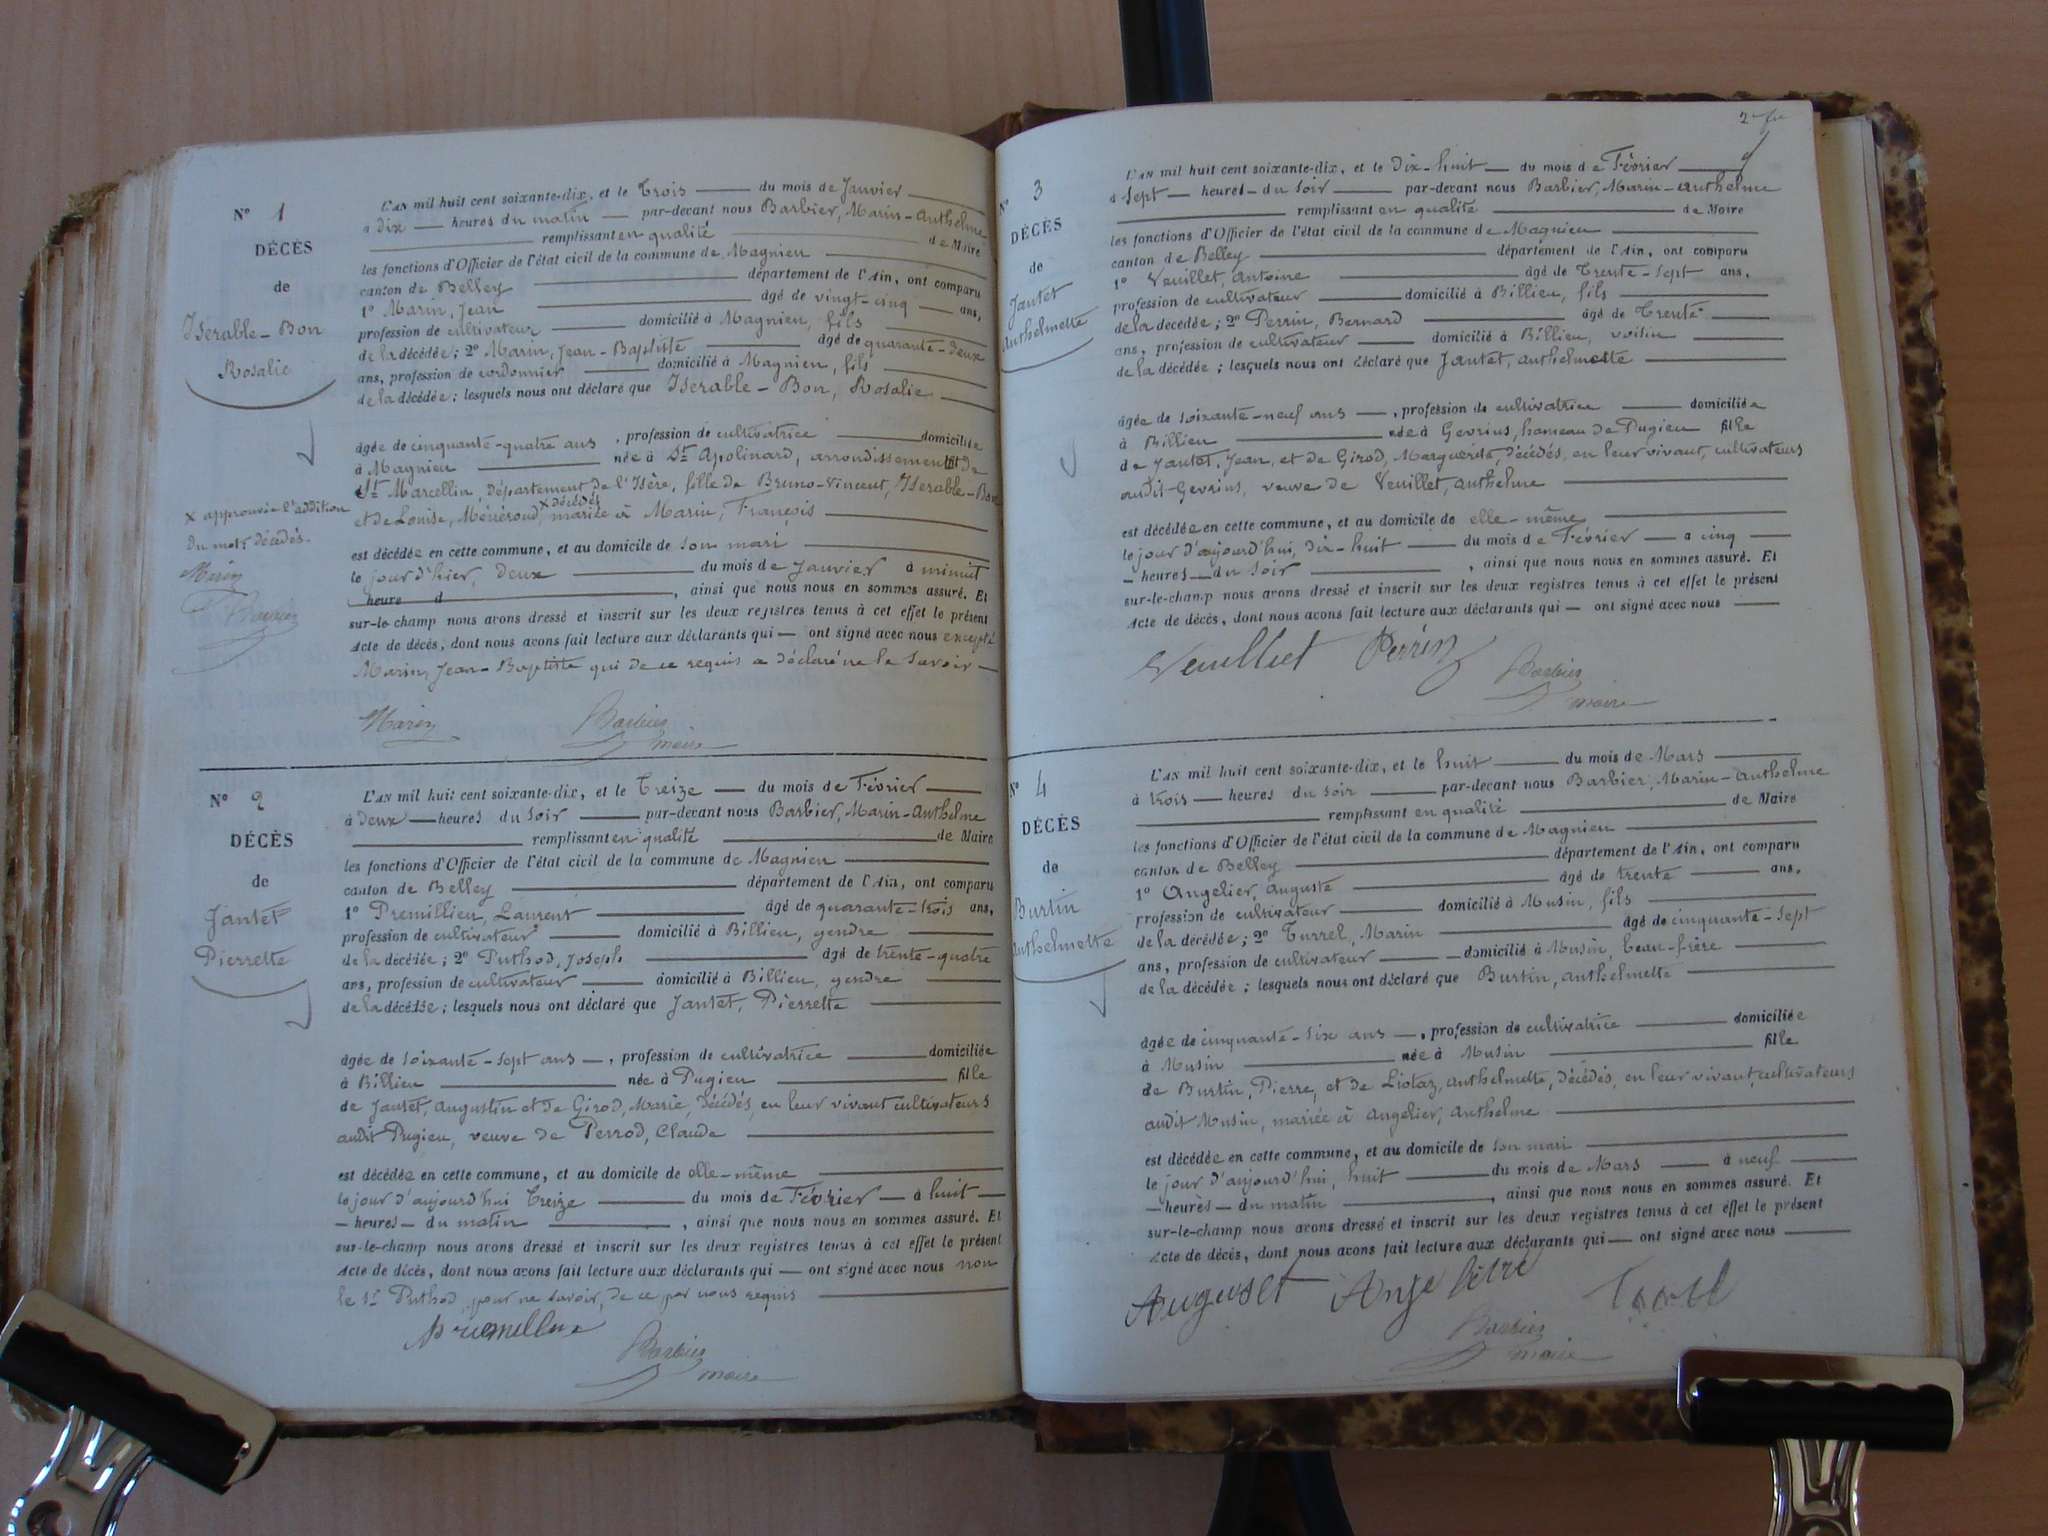 N° 1
DÉCÈS
de
Iserable-Bon
Rosalie
x approuvée l'addition
du mot décédés.
Marin
Barbier
L'AN mil huit cent soixante-dix, et le Trois du mois de Janvier
à dix heures du matin par-devant nous Barbier, Marin-Anthelme
remplissant en qualité de Maire
les fonctions d'Officier de l'état civil de la commune de Magnieu
canton de Belley département de l'Ain, ont comparu
1° Marin, Jean âgé de vingt-cinq ans,
profession de cultivateur domicilié à Magnieu, fils
de la décédée; 2° Marin, Jean-Baptiste âgé de quarante-deux
ans, profession de cordonnier domicilié à Magnieu, fils
de la décédée; lesquels nous ont déclaré que Iserable-Bon, Rosalie
âgée de cinquante-quatre ans, profession de cultivatrice domiciliée
à Magnieu née à St Apolinard, arrondissement de
St Marcellin, département de l'Isère, fille de Bruno-Vincent, Iserable-Bon
et de Louise, Ménéroud, x décédés mariée à Marin, François
est décédée en cette commune, et au domicile de son mari
le jour d'hier, deux du mois de Janvier à minuit
heure d , ainsi que nous nous en sommes assuré. Et
sur-le-champ nous avons dressé et inscrit sur les deux registres tenus à cet effet le présent
Acte de décès, dont nous avons fait lecture aux déclarants qui — ont signé avec nous excepté
Marin, Jean-Baptiste qui de ce requis a déclaré ne le savoir
Marin Barbier
maire
N° 2
DÉCÈS
de
Jantet
Pierrette
L'AN mil huit cent soixante-dix, et le Treize du mois de Février
à deux heures du soir par-devant nous Barbier, Marin-Anthelme
remplissant en qualité de Maire
les fonctions d'Officier de l'état civil de la commune de Magnieu
canton de Belley département de l'Ain, ont comparu
1° Premillieu, Laurent âgé de quarante-trois ans,
profession de cultivateur domicilié à Billieu, gendre
de la décédée; 2° Puthod, Joseph âgé de trente-quatre
ans, profession de cultivateur domicilié à Billieu, gendre
de la décédée; lesquels nous ont déclaré que Jantet, Pierrette
âgée de soixante-sept ans, profession de cultivatrice domiciliée
à Billieu née à Pugieu fille
de Jantet, Augustin et de Girod, Marie, décédés, en leur vivant cultivateurs
audit Pugieu, veuve de Perrod, Claude
est décédée en cette commune, et au domicile de elle-même
le jour d'aujourd'hui Treize du mois de Février à huit
heures du matin , ainsi que nous nous en sommes assuré. Et
sur-le-champ nous avons dressé et inscrit sur les deux registres tenus à cet effet le présent
Acte de décès, dont nous avons fait lecture aux déclarants qui — ont signé avec nous non
le Sr Puthod, pour ne savoir, de ce par nous requis
Barbier
maire
2e
N° 3
DÉCÈS
de
Jantet
Anthelmette
L'AN mil huit cent soixante-dix, et le dix-huit du mois de Février
à sept heures du soir par-devant nous Barbier, Marin-Anthelme
remplissant en qualité de Maire
les fonctions d'Officier de l'état civil de la commune de Magnieu
canton de Belley département de l'Ain, ont comparu
1° Veuillet, Antoine âgé de Trente-sept ans,
profession de cultivateur domicilié à Billieu, fils
de la décédée; 2° Perrin, Bernard âgé de Trente
ans, profession de cultivateur domicilié à Billieu, voisin
de la décédée; lesquels nous ont déclaré que Jantet, Anthelmette
âgée de soixante-neuf ans, profession de cultivatrice domiciliée
à Billieu née à Gevrins, hameau de Pugieu fille
de Jantet, Jean, et de Girod, Marguerite, décédés, en leur vivant, cultivateurs
audit-Gevrins, veuve de Veuillet, Anthelme
est décédée en cette commune, et au domicile de elle-même
le jour d'aujourd'hui, dix-huit du mois de Février à cinq
heures du soir , ainsi que nous nous en sommes assuré. Et
sur-le-champ nous avons dressé et inscrit sur les deux registres tenus à cet effet le présent
Acte de décès, dont nous avons fait lecture aux déclarants qui — ont signé avec nous
Veuilliet Perrin Barbier
maire
N° 4
DÉCÈS
de
Burtin
Anthelmette
L'AN mil huit cent soixante-dix, et le huit du mois de Mars
à trois heures du soir par-devant nous Barbier, Marin-Anthelme
remplissant en qualité de Maire
les fonctions d'Officier de l'état civil de la commune de Magnieu
canton de Belley département de l'Ain, ont comparu
1° Angelier, Auguste âgé de trente ans,
profession de cultivateur domicilié à Musin, fils
de la décédée; 2° Turrel, Marin âgé de cinquante-sept
ans, profession de cultivateur domicilié à Musin, beau-frère
de la décédée; lesquels nous ont déclaré que Burtin, Anthelmette
âgée de cinquante-six ans, profession de cultivatrice domiciliée
à Musin née à Musin fille
de Burtin, Pierre, et de Liotaz, Anthelmette, décédés, en leur vivant cultivateurs
audit Musin, mariée à Angelier, Anthelme
est décédée en cette commune, et au domicile de son mari
le jour d'aujourd'hui, huit du mois de Mars à neuf
heures du matin , ainsi que nous nous en sommes assuré. Et
sur-le-champ nous avons dressé et inscrit sur les deux registres tenus à cet effet le présent
Acte de décès, dont nous avons fait lecture aux déclarants qui — ont signé avec nous
Barbier
maire